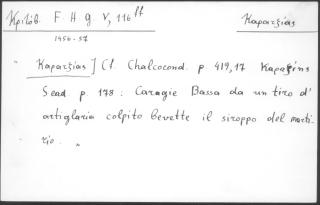 Κριτόβ. F. H. G. V, 116 ff
Καραζίας
1456-57
" Καραζίας] Cf Chalcocond. p. 419,17 Καραζίης
Sead. p. 178: Caragie Bassa da un tiro d'
artiglaria colpito bevette il siroppo del marti-
rio. "